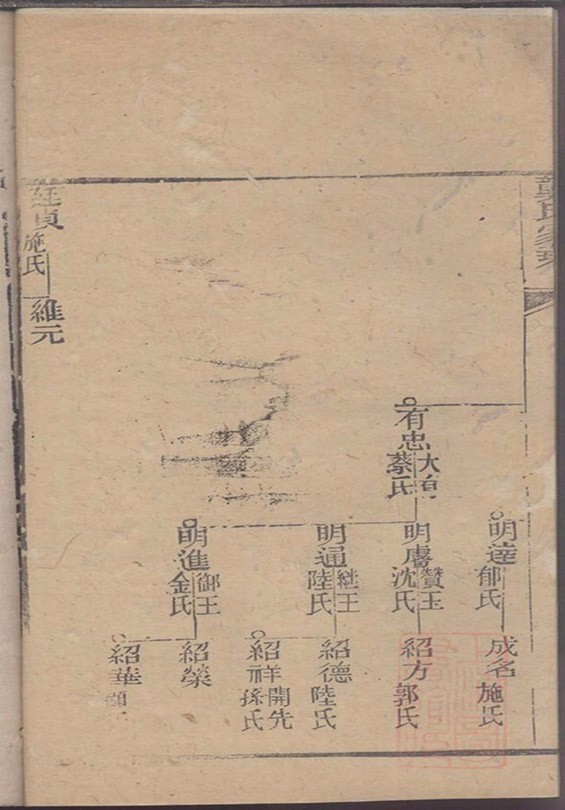 氏家
明達
郁氏
成名
施氏
有忠
蔡氏
明膚
贊玉
沈氏
紹方
郭氏
明通
継王
陸氏
紹德
陸氏
紹祥
開先
孫氏
明進
御王
金氏
紹榮
紹華
廷貞
施氏
維元